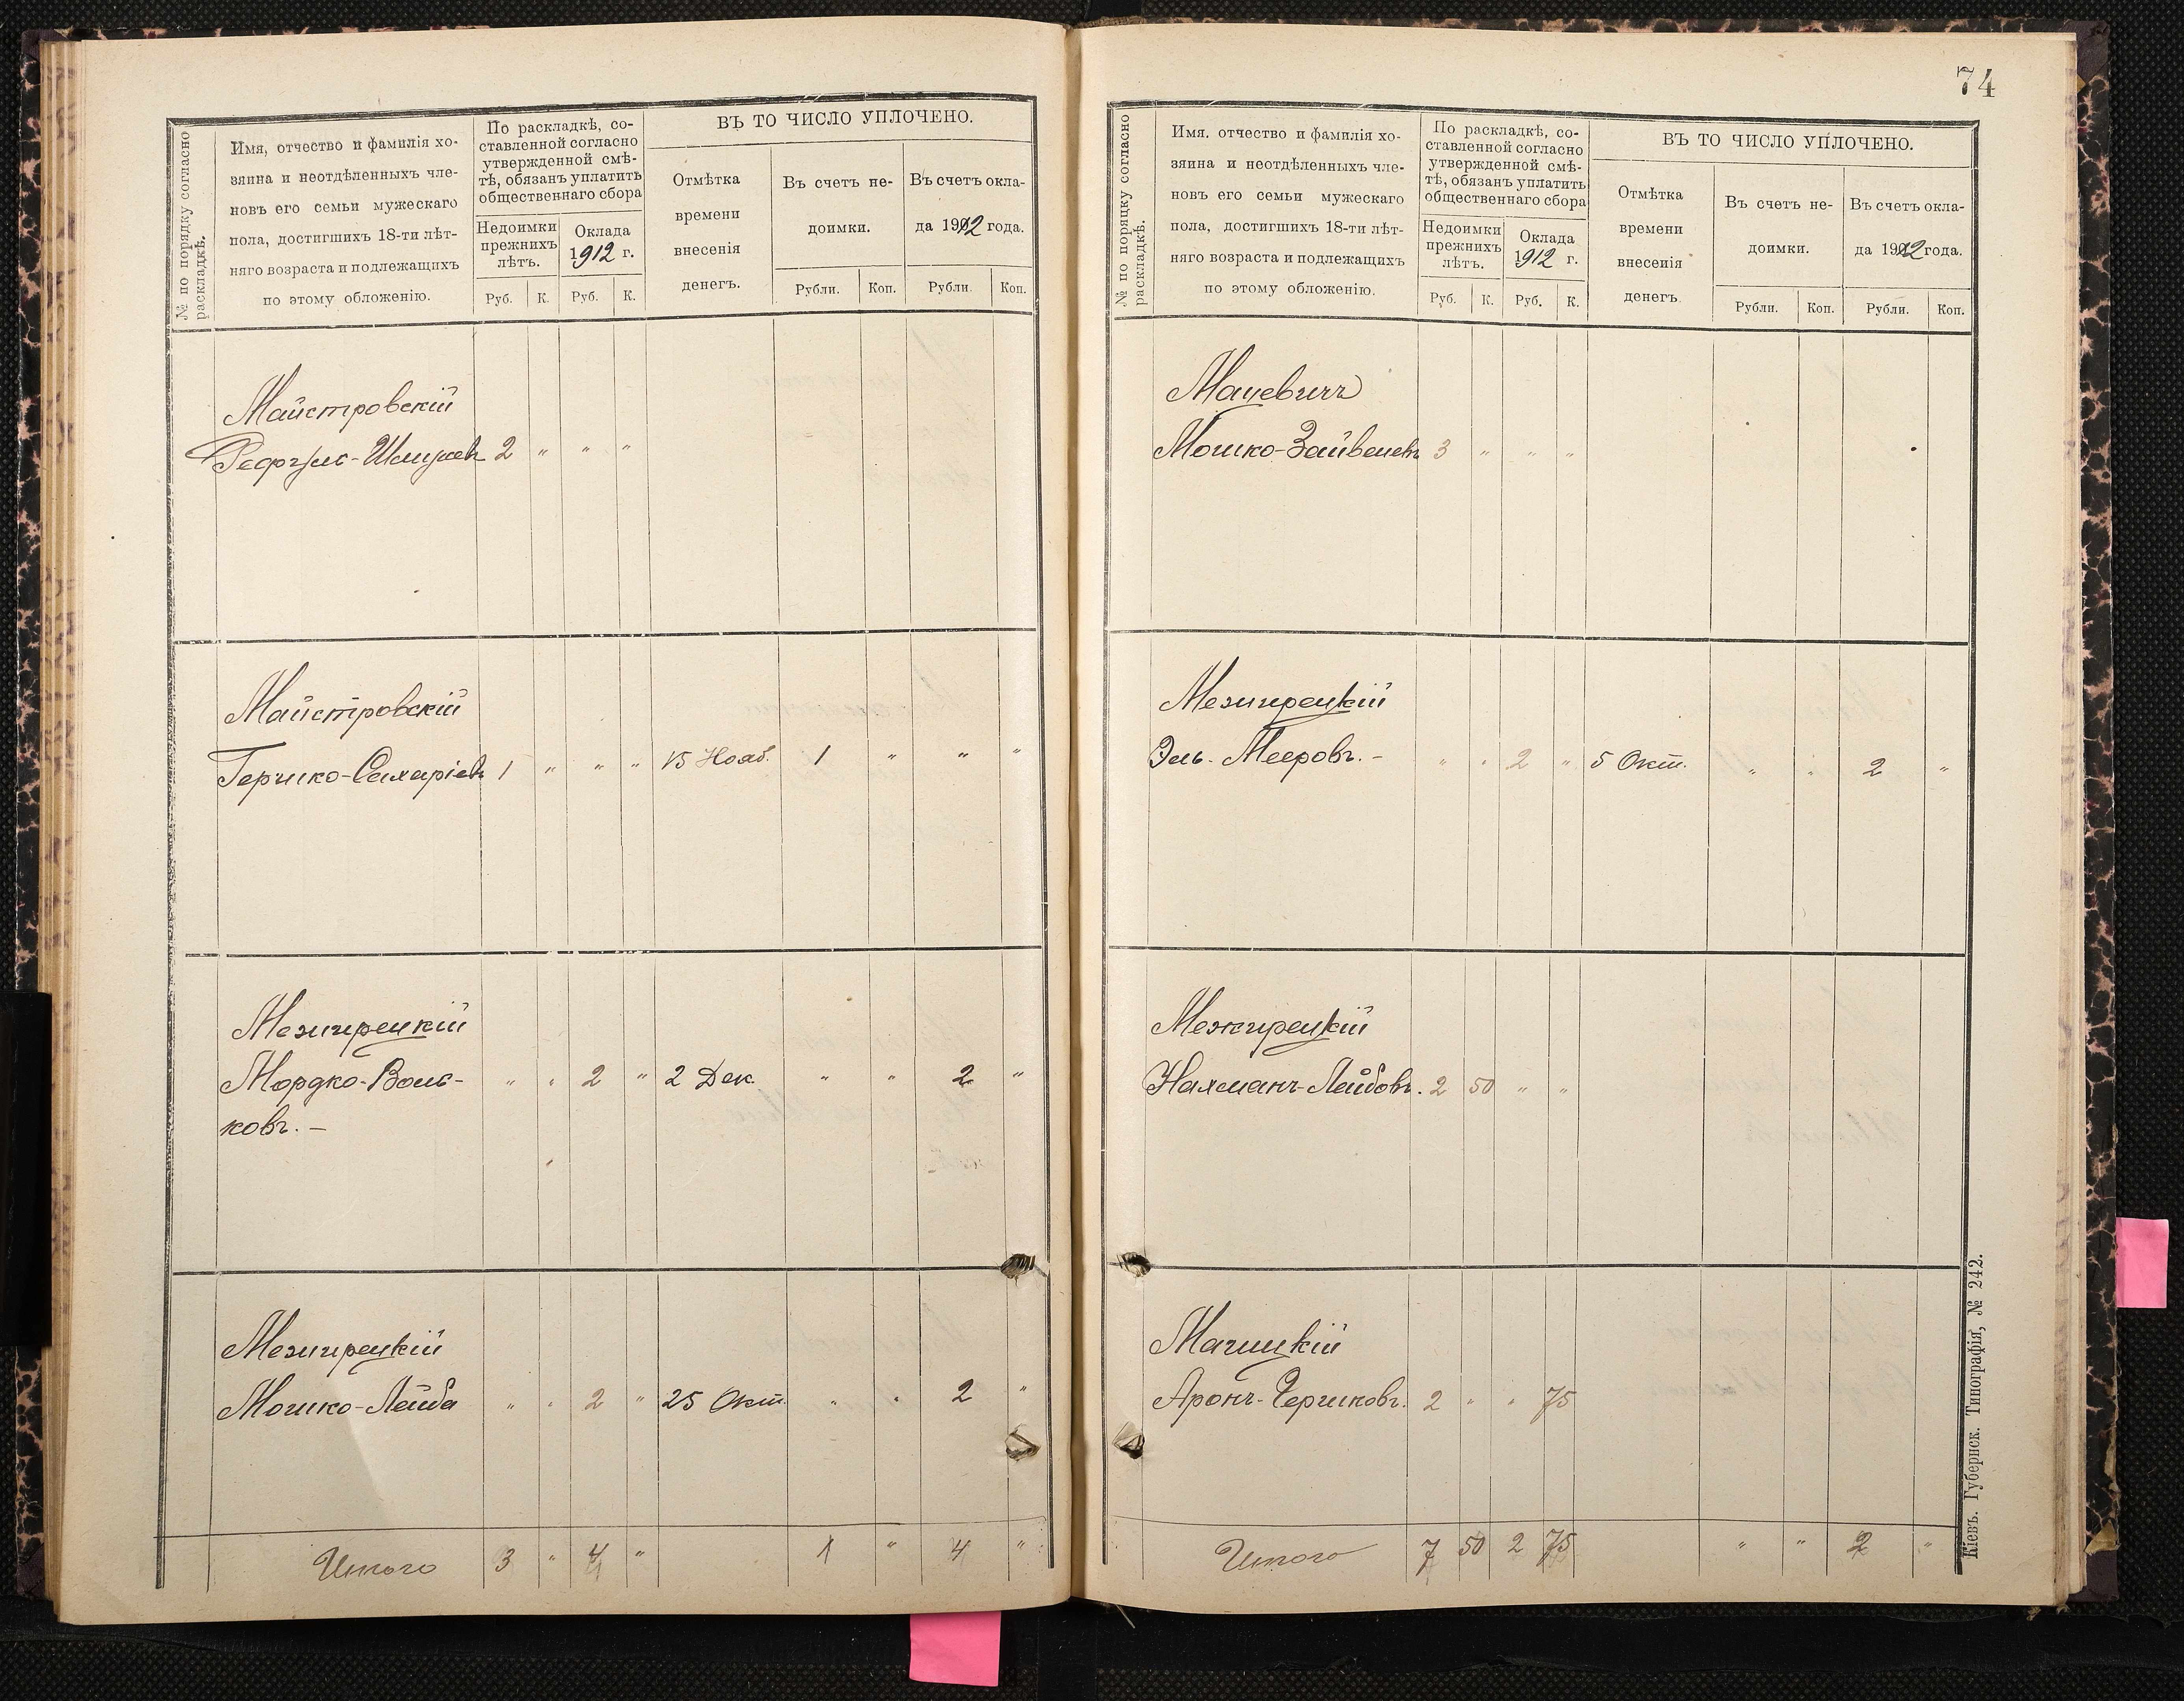 № по порядку согласно раскладкѣ.
Имя, отчество и фамилія хо-
зяина и неотдѣленныхъ чле-
новъ его семьи мужескаго
пола, достигшихъ 18-ти лѣт-
няго возраста и подлежащихъ
по этому обложенію.
По раскладкѣ, со-
ставленной согласно
утвержденной смѣ-
тѣ, обязанъ уплатить
общественнаго сбора
Недоимки
прежнихъ
лѣтъ.
Оклада
1912 г.
Руб. К. Руб. К.
ВЪ ТО ЧИСЛО УПЛОЧЕНО.
Отмѣтка
времени
внесенія
денегъ.
Въ счетъ не-
доимки.
Въ счетъ окла-
да 1912 года.
Рубли. Коп. Рубли. Коп.
Майстровскій
2 " " "
Майстровскій
Гершко-Сахаріевъ 1 " " " 15 Нояб. 1 " " "
Мезигрецкій
Мордко-Воль- " " 2 " 2 Дек. " " 2 "
ковъ. –
Мезигрецкій
Мошко-Лейба " " 2 " 25 Окт. " " 2 "
Итого 3 " 4 " 1 " 4 "
74
№ по порядку согласно раскладкѣ.
Имя, отчество и фамилія хо-
зяина и неотдѣленныхъ чле-
новъ его семьи мужескаго
пола, достигшихъ 18-ти лѣт-
няго возраста и подлежащихъ
по этому обложенію.
По раскладкѣ, со-
ставленной согласно
утвержденной смѣ-
тѣ, обязанъ уплатить
общественнаго сбора
Недоимки
прежнихъ
лѣтъ.
Оклада
1912 г.
Руб. К. Руб. К.
ВЪ ТО ЧИСЛО УПЛОЧЕНО.
Отмѣтка
времени
внесенія
денегъ.
Въ счетъ не-
доимки.
Въ счетъ окла-
да 1912 года.
Рубли. Коп. Рубли. Коп.
Мацевичъ
Мошко-Зайвелевъ 3 " " "
Мезигрецкій
Эль-Мееровъ. – " " 2 " 5 Окт. " " 2 "
Межирецкій
Нахманъ-Лейбовъ. 2 50 " "
Аронъ-Гершковъ. 2 " " 75
Итого 7 50 2 75 " " 2 "
Кіевъ. Губернск. Типографія, № 242.